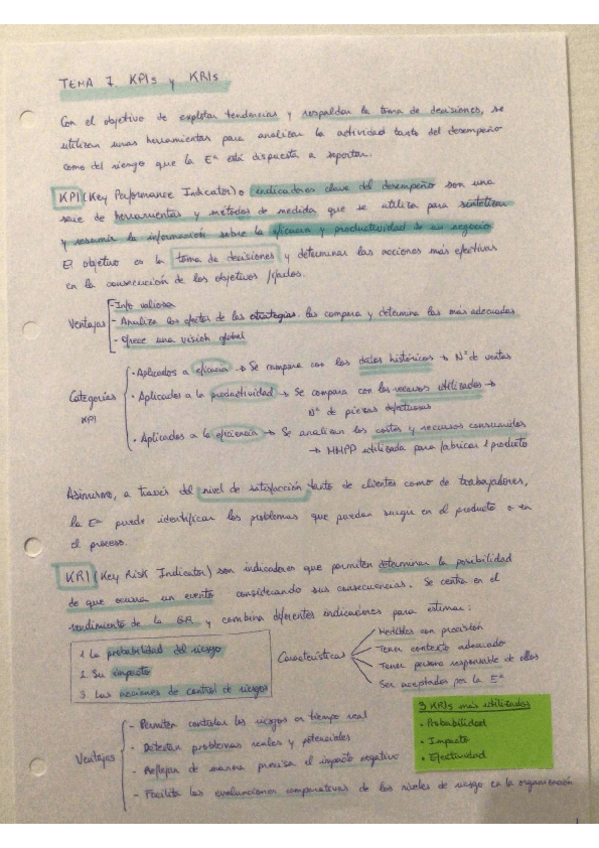 TEMA 7. KPIs y KRIs
Con el objetivo de explotar tendencias y respaldar la toma de decisiones, se
utilizan unas herramientas para analizar la actividad tanto del desempeño
como del riesgo que la Eª está dispuesta a soportar.
KPI (Key Performance Indicator) o indicadores clave del desempeño son una
serie de herramientas y métodos de medida que se utiliza para sintetizar
y resumir la información sobre la eficacia y productividad de un negocio
El objetivo es la toma de decisiones y determinar las acciones más efectivas
en la consecución de los objetivos fijados.
Ventajas
- Info valiosa
- Analiza los efectos de las estrategias. las compara y determina las más adecuadas
- Ofrece una visión global
Categorías KPI
· Aplicados a eficacia → Se compara con los datos históricos → Nº de ventas
· Aplicados a la productividad → Se compara con los recursos utilizados →
Nº de piezas defectuosas
· Aplicados a la eficiencia → Se analizan los costes y recursos consumidos
→ MMPP utilizada para fabricar 1 producto
Asimismo, a través del nivel de satisfacción tanto de clientes como de trabajadores,
la Eª puede identificar los problemas que puedan surgir en el producto o en
el proceso.
KRI (Key Risk Indicator) son indicadores que permiten determinar la posibilidad
de que ocurra un evento considerando sus consecuencias. Se centra en el
rendimiento de la GR y combina diferentes indicaciones para estimar:
1. La probabilidad del riesgo
2. Su impacto
3. Las acciones de control de riesgos
Características
Medibles con precisión
Tener contexto adecuado
Tener persona responsable de ellos
Ser aceptados por la Eª
Ventajas
- Permiten controlar los riesgos en tiempo real
- Detectan problemas reales y potenciales
- Reflejan de manera precisa el impacto negativo
- Facilita las evaluaciones comparativas de los niveles de riesgo en la organización
3 KRIs más utilizados
· Probabilidad
· Impacto
· Efectividad